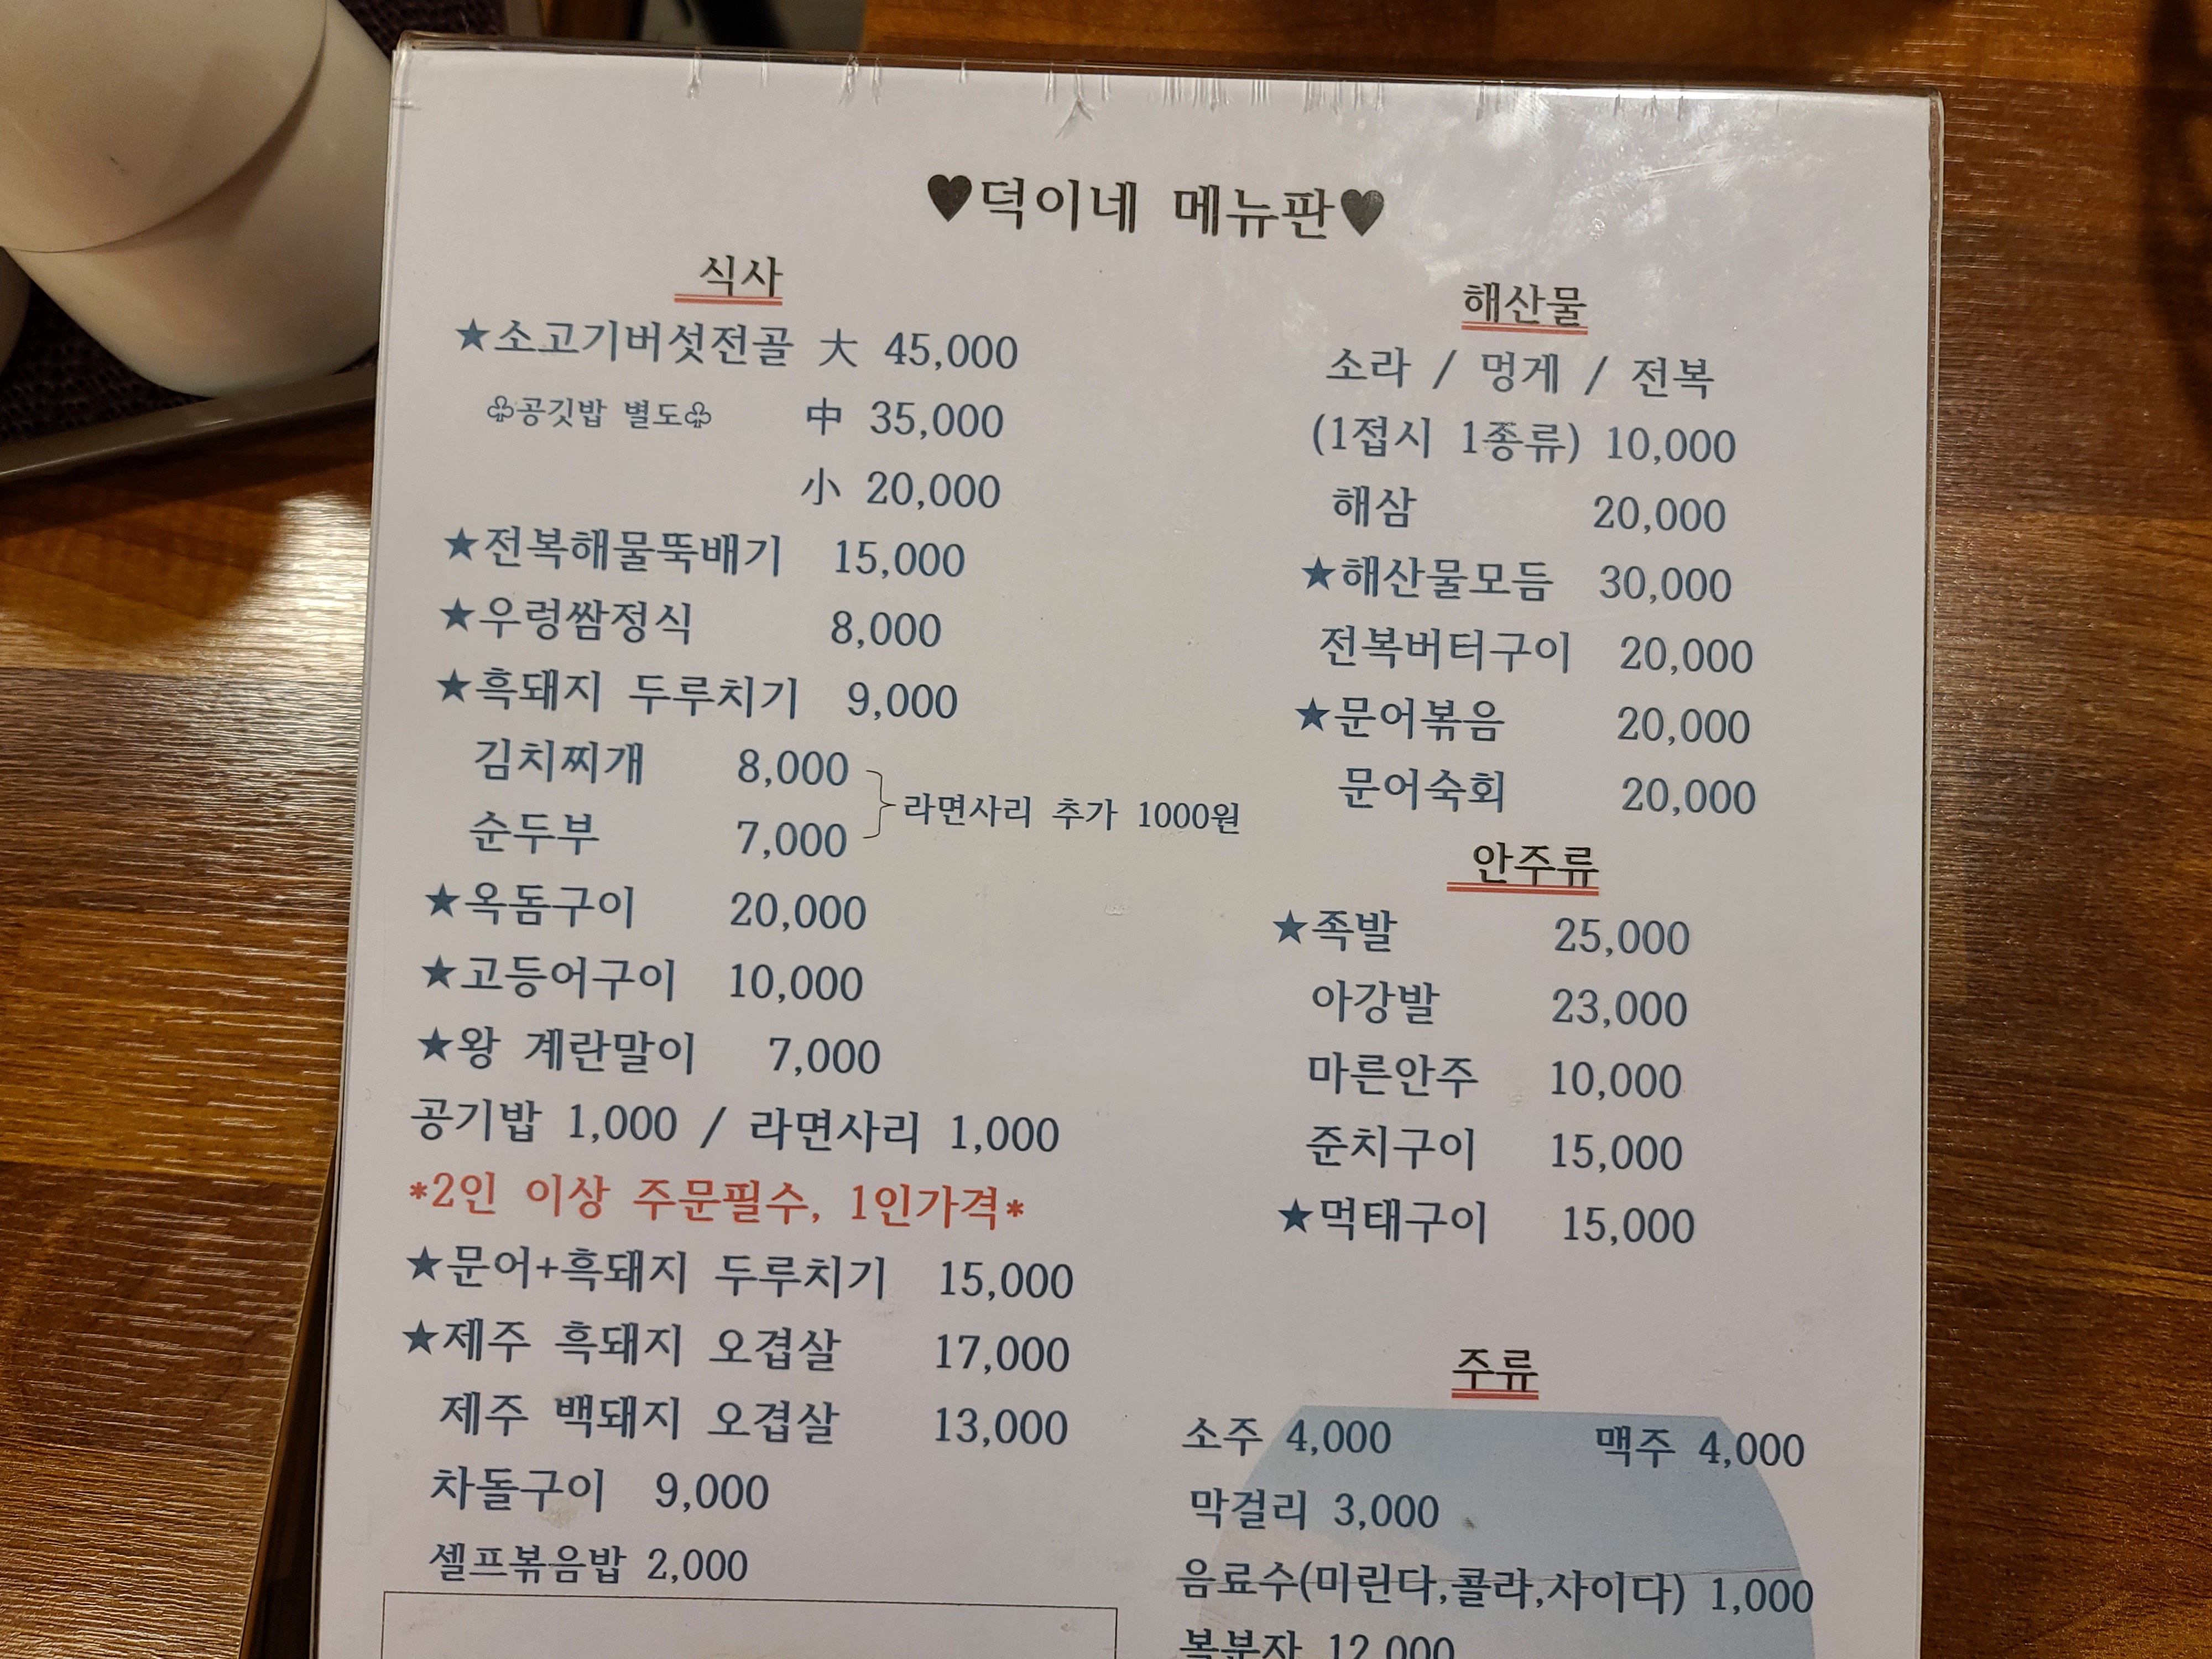 ♥덕이네 메뉴판♥
식사
★소고기버섯전골 大 45,000
♧공깃밥 별도♧ 中 35,000
小 20,000
★전복해물뚝배기 15,000
★우렁쌈정식 8,000
★흑돼지 두루치기 9,000
김치찌개 8,000
순두부 7,000
라면사리 추가 1000원
★옥돔구이 20,000
★고등어구이 10,000
★왕 계란말이 7,000
공기밥 1,000 / 라면사리 1,000
*2인 이상 주문필수, 1인가격*
★문어+흑돼지 두루치기 15,000
★제주 흑돼지 오겹살 17,000
제주 백돼지 오겹살 13,000
차돌구이 9,000
셀프볶음밥 2,000
해산물
소라 / 멍게 / 전복
(1접시 1종류) 10,000
해삼 20,000
★해산물모듬 30,000
전복버터구이 20,000
★문어볶음 20,000
문어숙회 20,000
안주류
★족발 25,000
아강발 23,000
마른안주 10,000
준치구이 15,000
★먹태구이 15,000
주류
소주 4,000 맥주 4,000
막걸리 3,000
음료수(미린다,콜라,사이다) 1,000
복분자 12,000